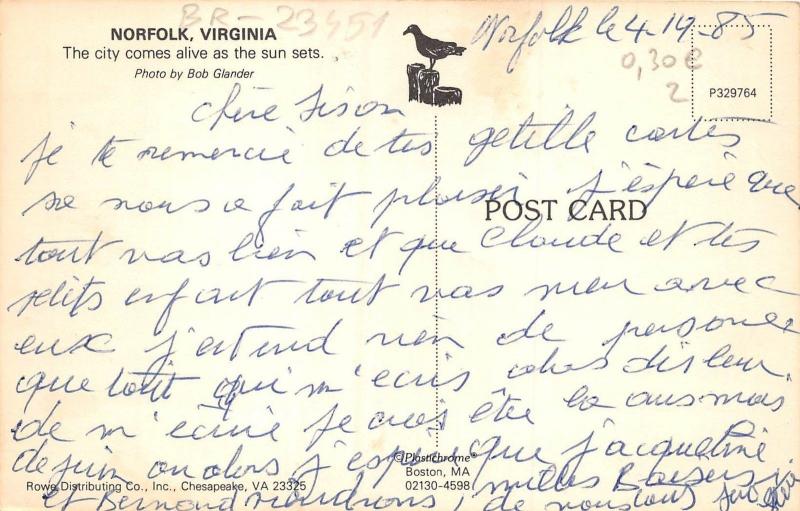 BR-23451
NORFOLK, VIRGINIA
The city comes alive as the sun sets.
Photo by Bob Glander
Norfolk le 4-19-85
0,30€
2
P329764
chère
je te remercie de tes getille cartes
sa nous a fait plaisir j'éspère que
POST CARD
tout vas bien et que Claude et tes
petits enfant tout vas avec
eux j'attend rien de personne
que tout qui m'ecris alors dis leur
de m'écrire je crois être la aus mois
de juin ou alors j'espère que jacqueline
©Plastichrome®
Boston, MA
02130-4598
Rowe Distributing Co., Inc., Chesapeake, VA 23325
et Bernard viendrons, milles Baisers
de nous tous